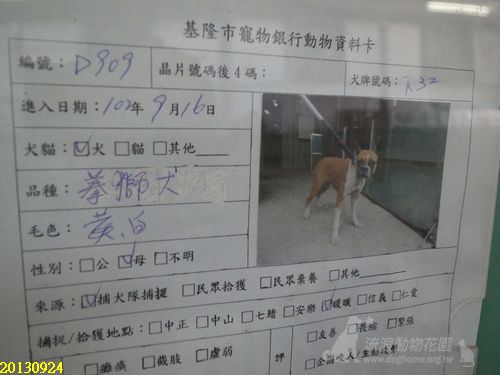 基隆市寵物銀行動物資料卡
編號：D909 晶片號碼後4碼： 犬牌號碼：下32
進入日期：102年9月16日
犬貓：☑犬 □貓 □其他
品種：拳獅犬
毛色：黃、白
性別：□公 ☑母 □不明
來源：☑捕犬隊捕捉 □民眾拾獲 □民眾棄養 □其他
捕捉/拾獲地點：□中正 □中山 □七堵 □安樂 ☑暖暖 □信義 □仁愛
□癱瘓 □截肢 □虛弱 評 □友善 □畏縮 □緊張
□企圖咬人/主動攻擊
流浪動物花園
www.doghome.org.tw
20130924